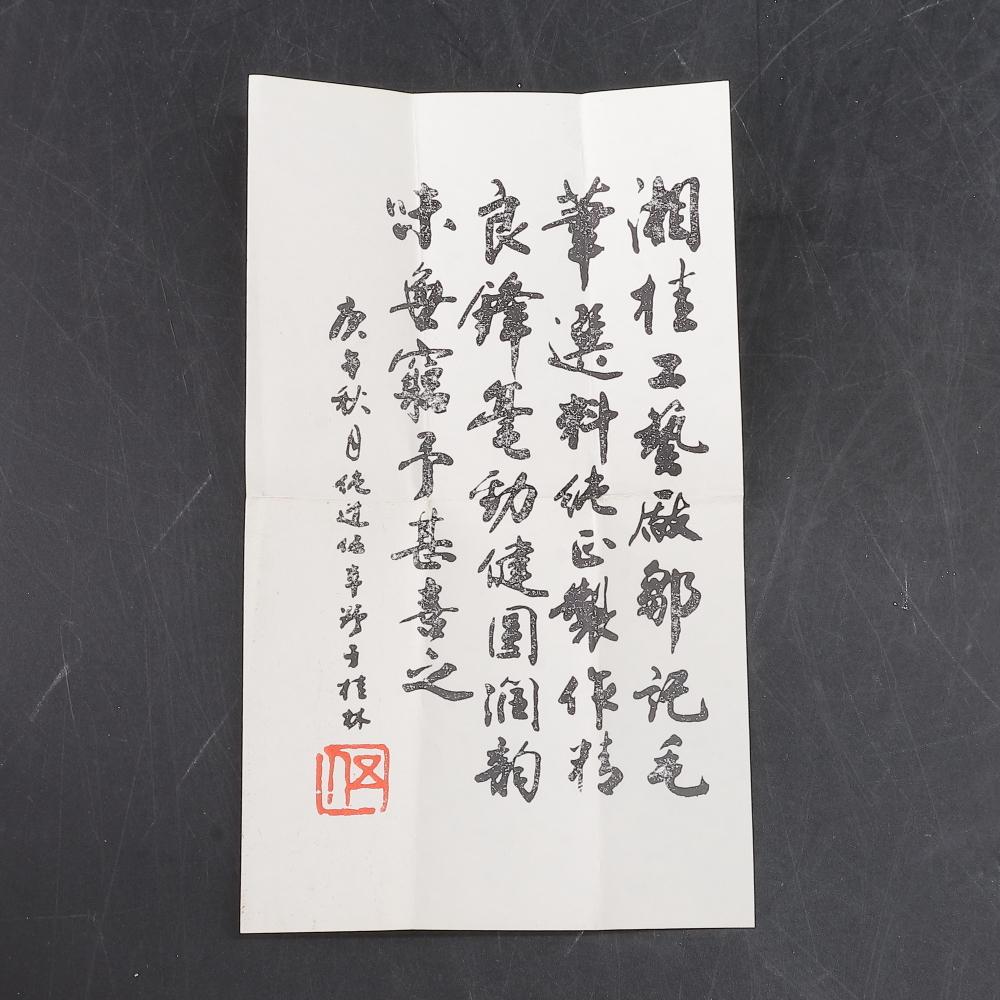 湘桂工藝厰鄒記毛
筆選料純正製作精
良鋒毫勁健圓润韵
味無窮予甚喜之
庚午秋月純道伍草野于桂林
伍